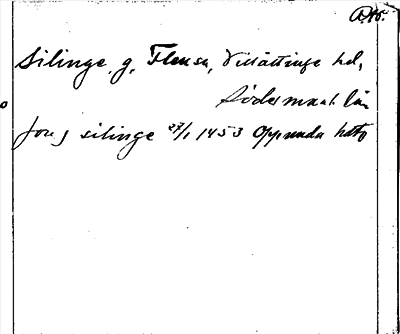 Ark.
Silinge, g, Flensa, Villåttinge hd,
Södermanl. län
jon j silinge 27/1 1453 Oppunda hds